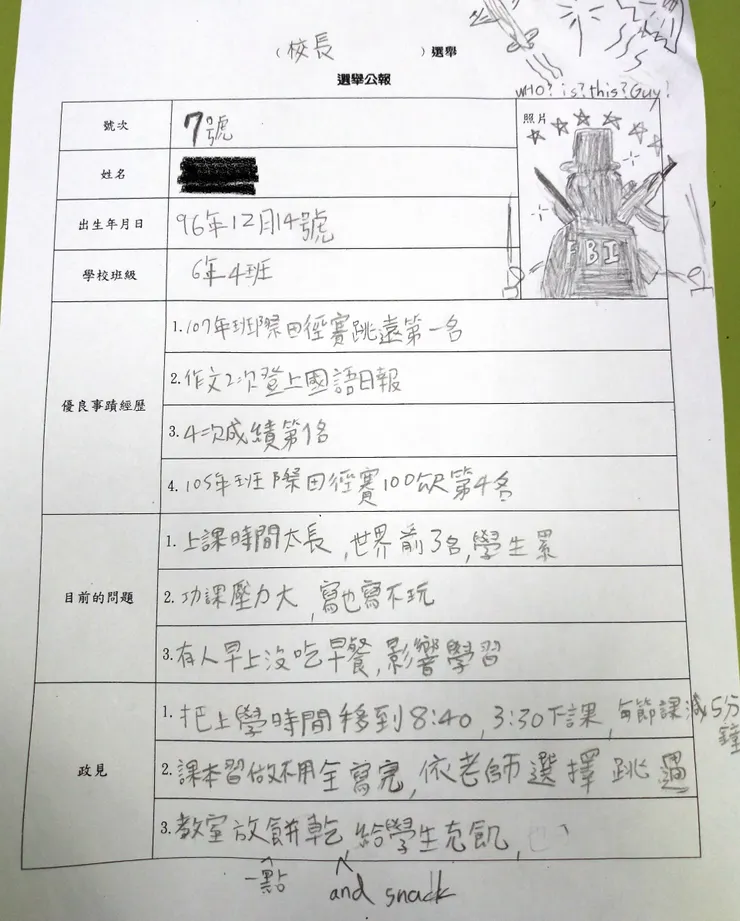 （校長）選舉
選舉公報
WHO? is? this? Guy!
號次 7號 照片
姓名
出生年月日 96年12月14號
學校班級 6年4班
FBI
優良事蹟經歷
1.107年班際田徑賽跳遠第一名
2.作文2次登上國語日報
3.4次成績第1名
4.105年班際田徑賽100公尺第4名
目前的問題
1.上課時間太長,世界前3名,學生累
2.功課壓力大,寫也寫不玩
3.有人早上沒吃早餐,影響學習
政見
1.把上學時間移到8:40,3:30下課,每節課減5分鐘
2.課本習做不用全寫完,依老師選擇跳過
3.教室放餅乾,給學生充飢,
一點
and snack